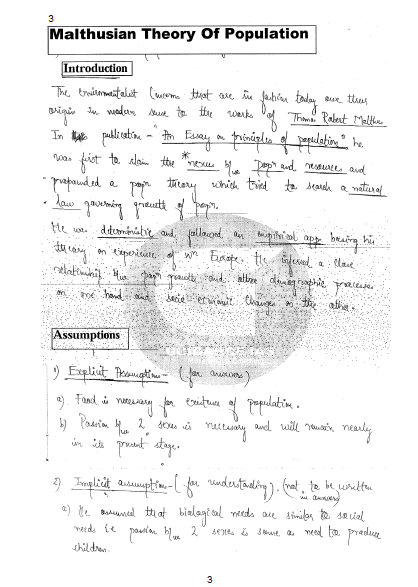 3
Malthusian Theory Of Population
Introduction
The environmentalist concerns that are in fashion today owe their
origin in modern sense to the works of Thomas Robert Malthus
In his publication - "An Essay on principles of population" he
was first to claim the *nexus b/w pop'n and resources and
propounded a pop'n theory which tried to search a natural
law governing growth of pop'n.
He was deterministic and followed an empirical app basing his
theory on experience of wn Europe. He inferred a close
relationship b/w pop'n growth and other demographic processes
on one hand and socio economic changes on the other.
Assumptions
1) Explicit Assumption - (for answers)
a) Food is necessary for existence of population.
b) Passion b/w 2 sexes is necessary and will remain nearly
in its present stage.
2) Implicit assumption - (for understanding). (not to be written
in answers)
a) He assumed that biological needs are similar to social
needs i.e passion b/w 2 sexes is same as need to produce
children.
3